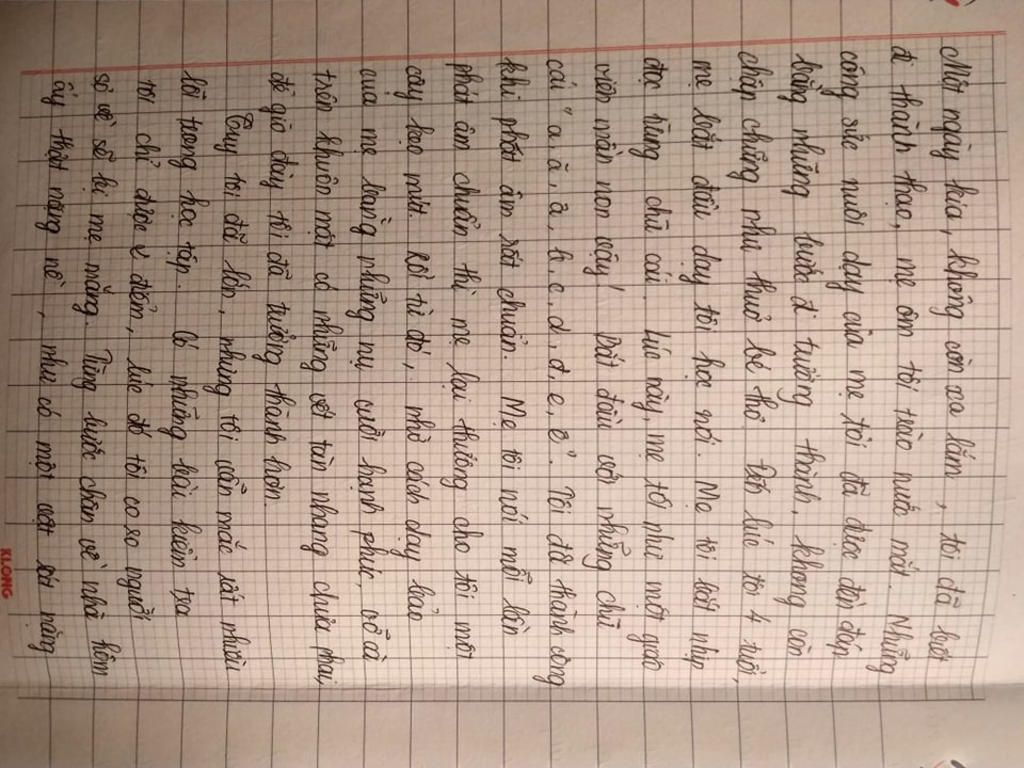 Một ngày kia, không còn xa lắm, tôi đã bước
đi thành thạo, mẹ ôm tôi trào nước mắt. Những
công sức nuôi dạy của mẹ tôi đã được đền đáp
bằng những bước đi trưởng thành, không còn
chập chững như thuở bé thơ. Đến lúc tôi 4 tuổi,
mẹ bắt đầu dạy tôi học nói. Mẹ tôi bắt nhịp
đọc từng chữ cái, lúc này, mẹ tôi như một giáo
viên mần non vậy! Bắt đầu với những chữ
cái "a, ă, â, b, c, d, đ, e, ê". Tôi đã thành công
khi phát âm rất chuẩn. Mẹ tôi nói mỗi lần
phát âm chuẩn thì mẹ lại thưởng cho tôi một
cây kẹo mút. Kể từ đó, nhờ cách dạy bảo
của mẹ bằng những nụ cười hạnh phúc, về cả
trên khuôn mặt có những vết tàn nhang chưa phai,
để giờ đây tôi đã trưởng thành hơn.
Tuy tôi đã lớn, nhưng tôi vẫn mắc rất nhiều
lỗi trong học tập. Có những bài kiểm tra
tôi chỉ được 4 điểm, lúc đó tôi co so người
sợ về sẽ bị mẹ mắng. Từng bước chân về nhà hôm
ấy thật nặng nề, như có một vật gì nặng
KLONG